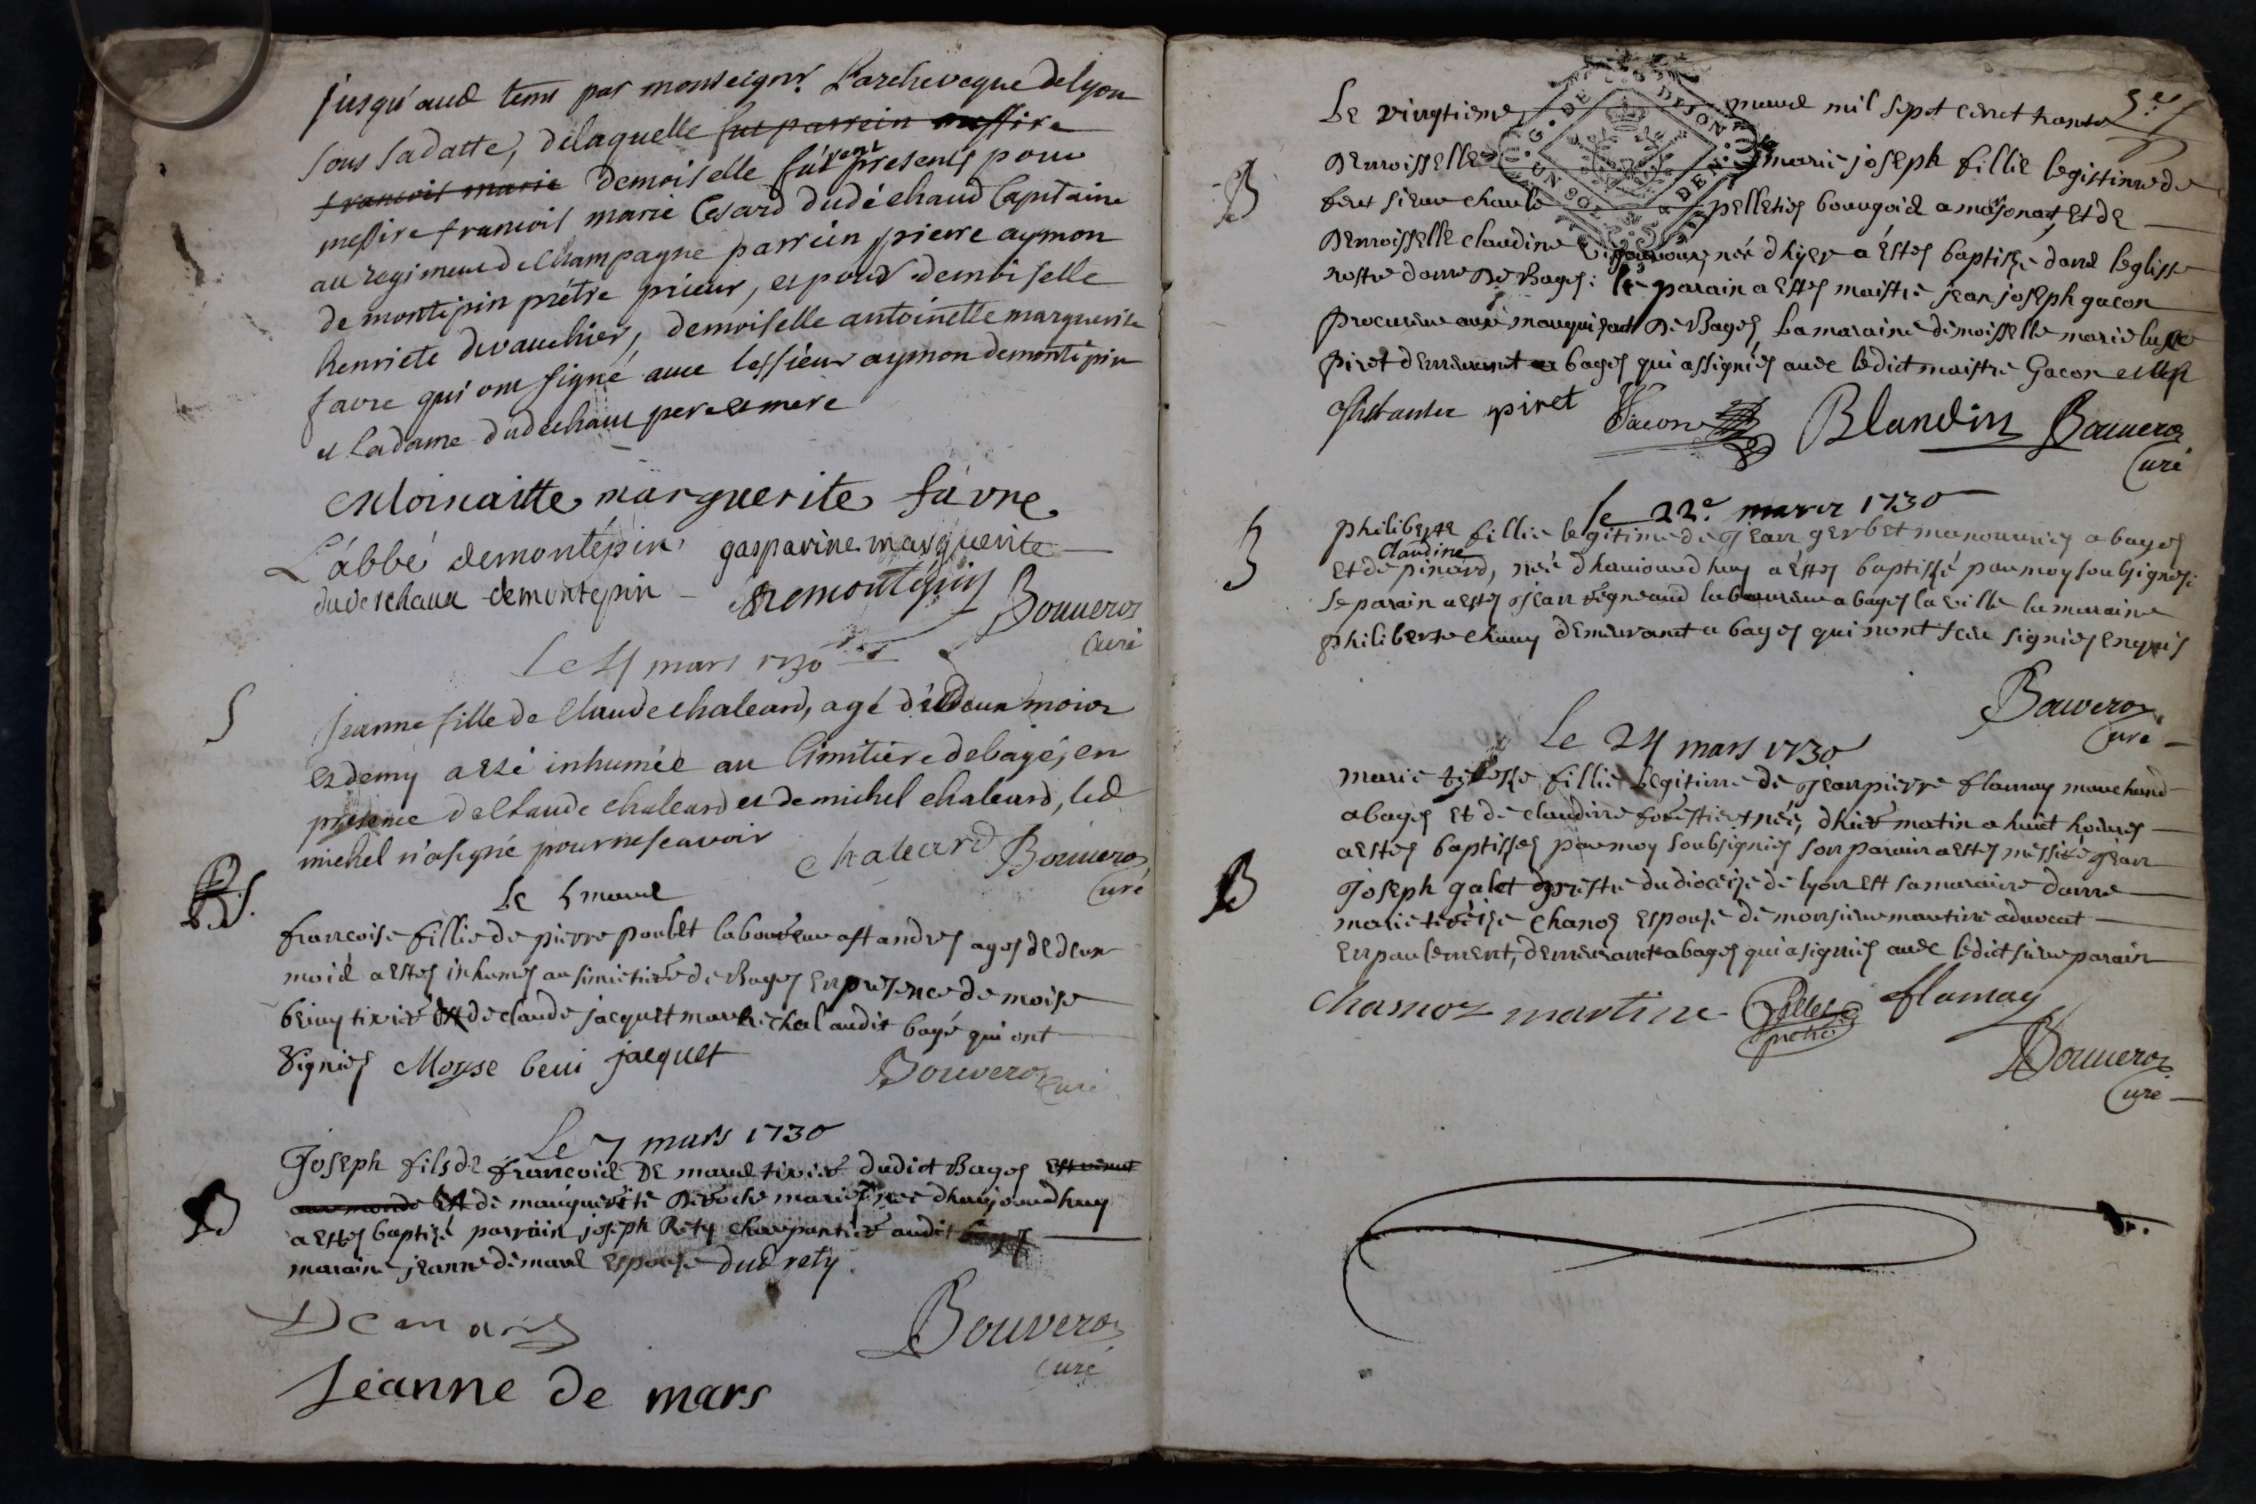 jusqu'aud tems par monseignr. L'archeveque de lyon
sous sa datte, delaquelle fut parrein messire
francois marie demoiselle furent presents pour
messire francois marie Cesard dudéchaud Capitaine
au regiment de Champagne parrein, pierre aymon
de montépin prétre prieur, et pour demoiselle
henriete devauchier, demoiselle antoinette marguerite
favre qui ont signé avec lessieur aymon demontépin
et la dame dudechaut pere et mere
marguerite favre
L'abbé demontépin gasparine marguerite
dudechaux demontepin demontepin
Bouveroz
Curé
Le 4 mars 1730
S
Jeanne fille de Claude chaleard, agé de deux moies
et demy a esté inhumée au Cimitiere de bagé, en
presence de Claude chaleard et de michel chaleard, led
michel n'a signé pour ne scavoir
chaleard Bouveroz
Curé
S.
Le 5 mard
francoise fillie de pierre poulet laboureur a st andrez ages de deux
moid a estes inhumes au simietiere de Bages en presence de moise
beiuy tixier est de claude jacquet marechal audit bagé qui ont
signiez Moyse beui jacquet
Bouveroz Curé
Le 7 mars 1730
Joseph fils de francoid de mard tixier dudict Bages est venut
aux monde est de marguerite Deroche mariez nee dhaujourdhuy
B
a estes baptizé parrain joseph Rety charpantier audit bagez
maraine jeanne de mard espouse dud rety.
De mars
Bouveroz
Curé
Jeanne de mars
5e
Le vingtieme mard mil sept cent trante
G. DE DIJON
UN SOL
B
Demoisselle marie joseph fillie legittime de
feut sieur charle pelletier bourgoid a masonay, et de
Demoisselle claudine née dhyer a estes baptisze dans leglisse
nostre dame de Bages: le parain a estes maistre jean joseph gacon
procureur aux marquisad de Bages, la maraine demoisselle marie
piret demeurant a bages qui assignies avec ledict maistre Gacon
piret Gacon Blandin Bouveroz
Curé
le 22e. mars 1730
B
philiberte fillie legitime de Jean gerbet manouvriez a bages
Claudine
et de pinard, née dhauiourdhuy a estes baptissé par moy soubsignez:
le parain a estes Jean regneaud laboureur a bages la ville la maraine
philiberte chauy demeurant a bages qui nont sceu signies enquis
Bouveroz
Curé
Le 24 mars 1730
marie terese fillie legitime de Jean pierre flamay marchand
a bages et de claudine forestier née, dhier matin a huict hoeures
a estes baptisses par moy soubsignies son parain a estes messire Jean
B
Joseph galet prestre du dioceize de lyon est sa maraine dame
marie tereize Chanoz espouse de monsieur martine advocat
en paulement, demeurant a bages qui a signies avec ledict sieur parain
chasnoz martine flamay
Bouveroz
Curé